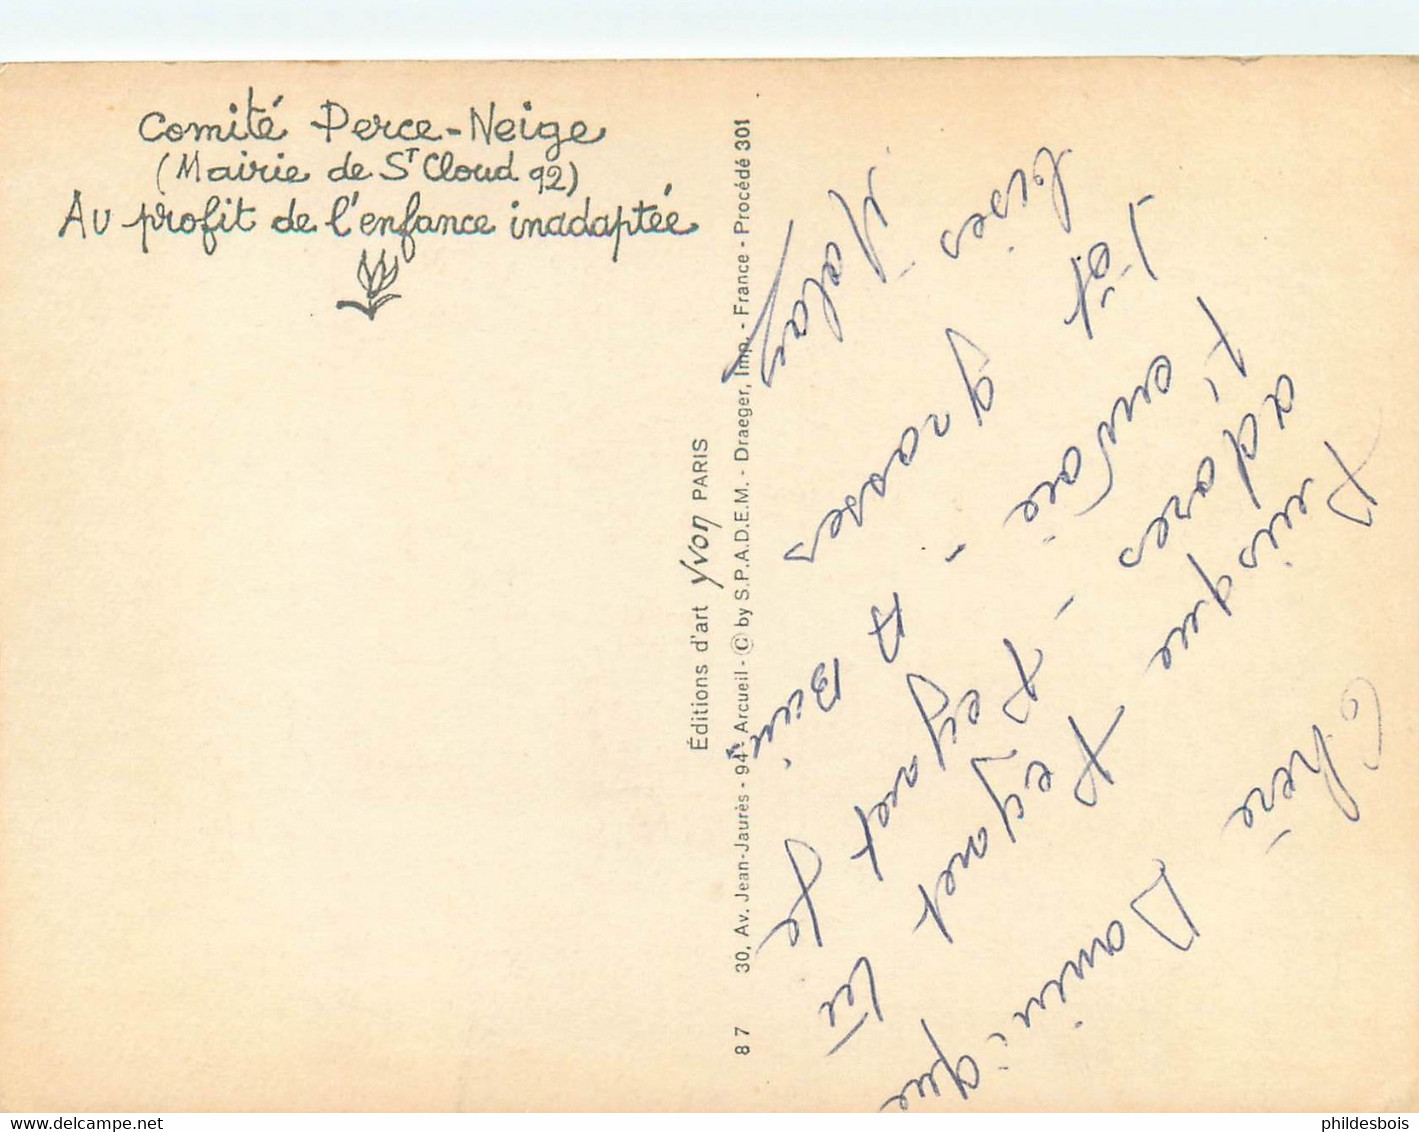 Comité Perce-Neige
(Mairie de St Cloud 92)
Au profit de l'enfance inadaptée
Éditions d'art Yvon PARIS
87 30, Av. Jean-Jaurès - 94 - Arcueil - © by S.P.A.D.E.M. - Draeger, Imp. - France - Procédé 301
Chère Dominique
Puisque tu
adores Peynet je
t'envoie - Peynet
A Bientôt
grosses
bises
phildesbois